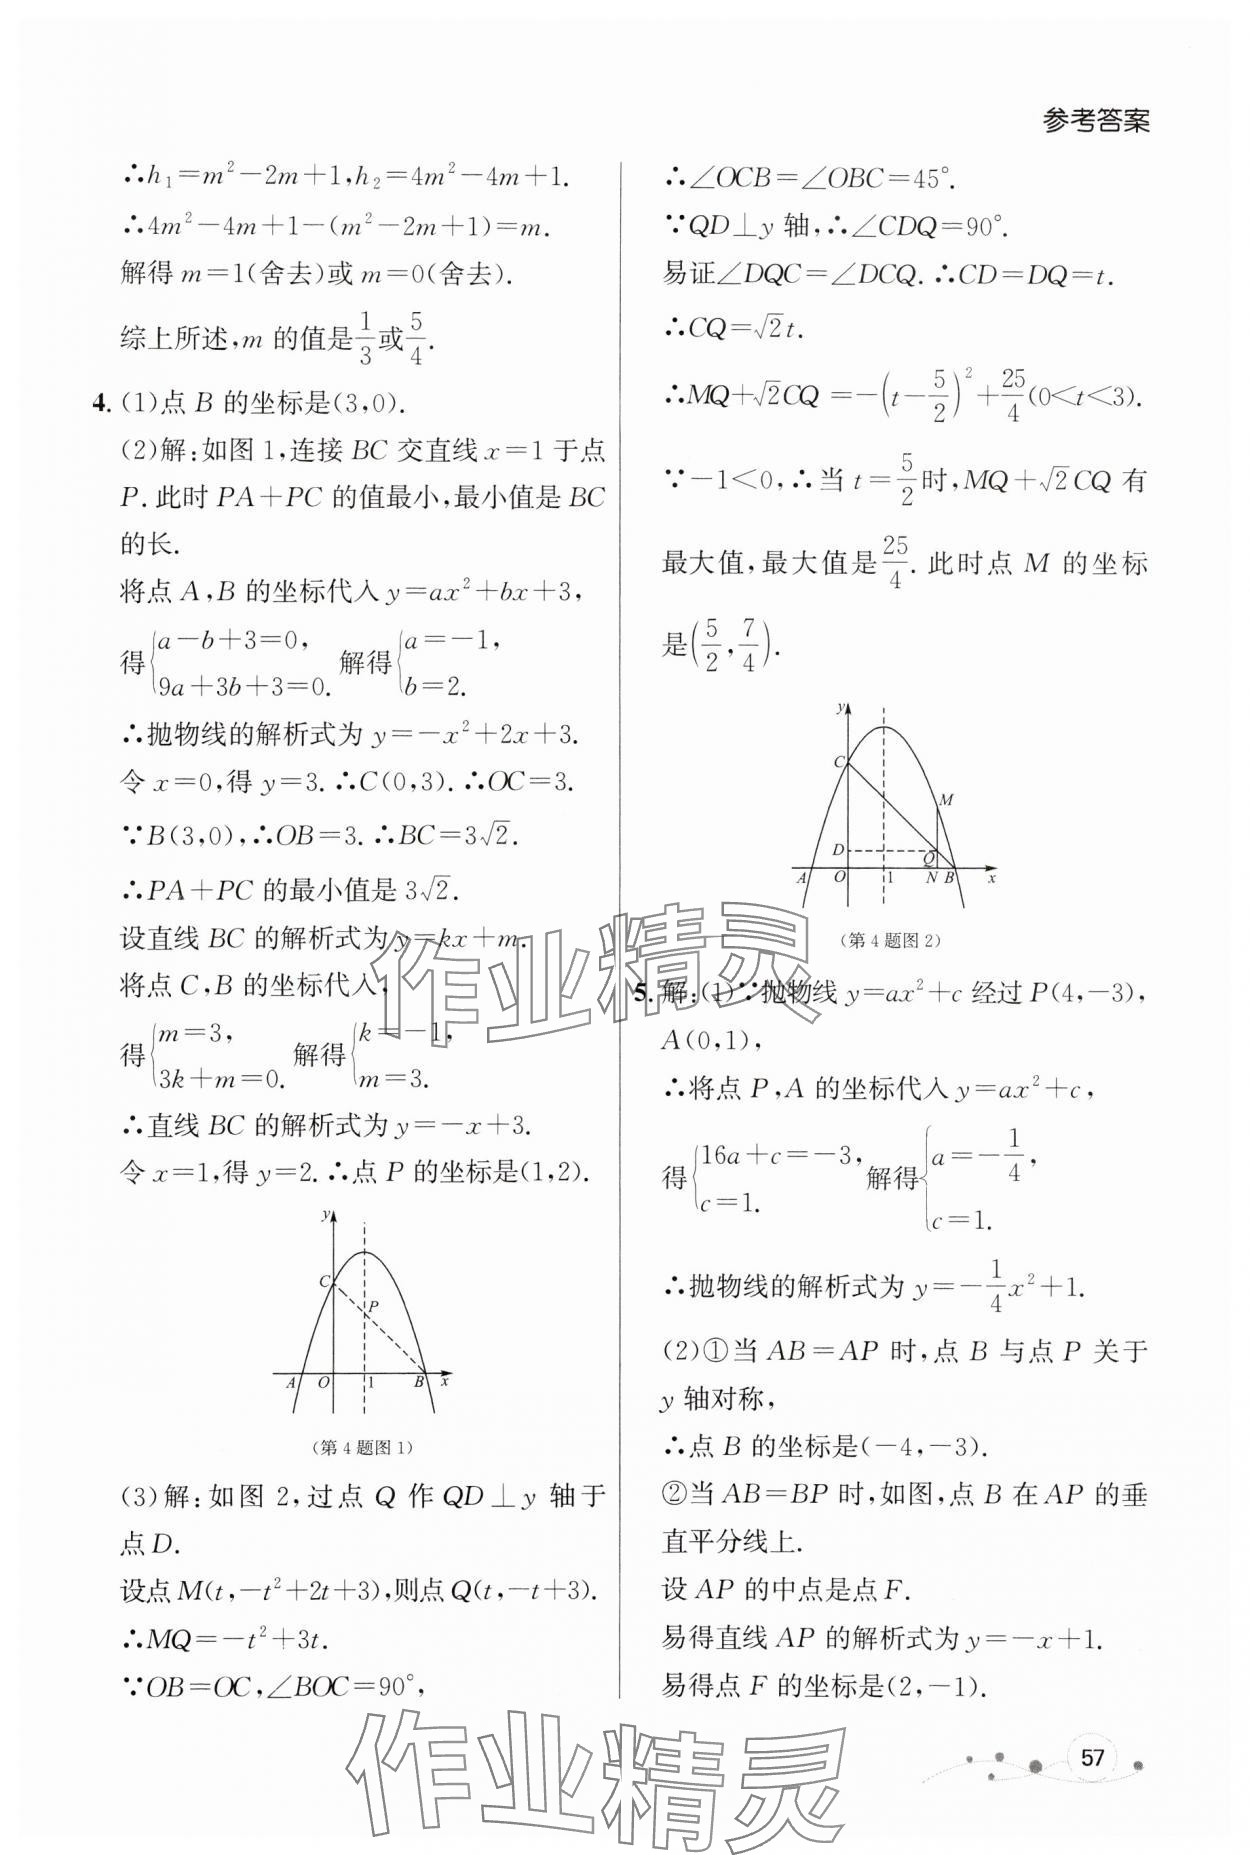 参考答案
∴h₁=m²-2m+1,h₂=4m²-4m+1.
∴4m²-4m+1-(m²-2m+1)=m.
解得 m=1(舍去)或 m=0(舍去).
综上所述,m 的值是1/3或5/4.
4.(1)点 B 的坐标是(3,0).
(2)解:如图 1,连接 BC 交直线 x=1 于点
P. 此时 PA+PC 的值最小,最小值是 BC
的长.
将点 A,B 的坐标代入 y=ax²+bx+3,
得{a-b+3=0, 9a+3b+3=0. 解得{a=-1, b=2.
∴抛物线的解析式为 y=-x²+2x+3.
令 x=0,得 y=3. ∴C(0,3). ∴OC=3.
∵B(3,0),∴OB=3. ∴BC=3√2.
∴PA+PC 的最小值是 3√2.
设直线 BC 的解析式为 y=kx+m.
将点 C,B 的坐标代入,
得{m=3, 3k+m=0. 解得{k=-1, m=3.
∴直线 BC 的解析式为 y=-x+3.
令 x=1,得 y=2. ∴点 P 的坐标是(1,2).
y
C
P
A O 1 B x
(第 4 题图 1)
(3)解:如图 2,过点 Q 作 QD⊥y 轴于
点 D.
设点 M(t,-t²+2t+3),则点 Q(t,-t+3).
∴MQ=-t²+3t.
∵OB=OC,∠BOC=90°,
∴∠OCB=∠OBC=45°.
∵QD⊥y 轴,∴∠CDQ=90°.
易证∠DQC=∠DCQ. ∴CD=DQ=t.
∴CQ=√2t.
∴MQ+√2CQ=-(t-5/2)²+25/4(0<t<3).
∵-1<0,∴当 t=5/2时,MQ+√2CQ 有
最大值,最大值是25/4. 此时点 M 的坐标
是(5/2,7/4).
y
C
M
D
Q
A O 1 N B x
(第 4 题图 2)
5.解:(1)∵抛物线 y=ax²+c 经过 P(4,-3),
A(0,1),
∴将点 P,A 的坐标代入 y=ax²+c,
得{16a+c=-3, c=1. 解得{a=-1/4, c=1.
∴抛物线的解析式为 y=-1/4x²+1.
(2)①当 AB=AP 时,点 B 与点 P 关于
y 轴对称,
∴点 B 的坐标是(-4,-3).
②当 AB=BP 时,如图,点 B 在 AP 的垂
直平分线上.
设 AP 的中点是点 F.
易得直线 AP 的解析式为 y=-x+1.
易得点 F 的坐标是(2,-1).
作业精灵
作业精灵
57